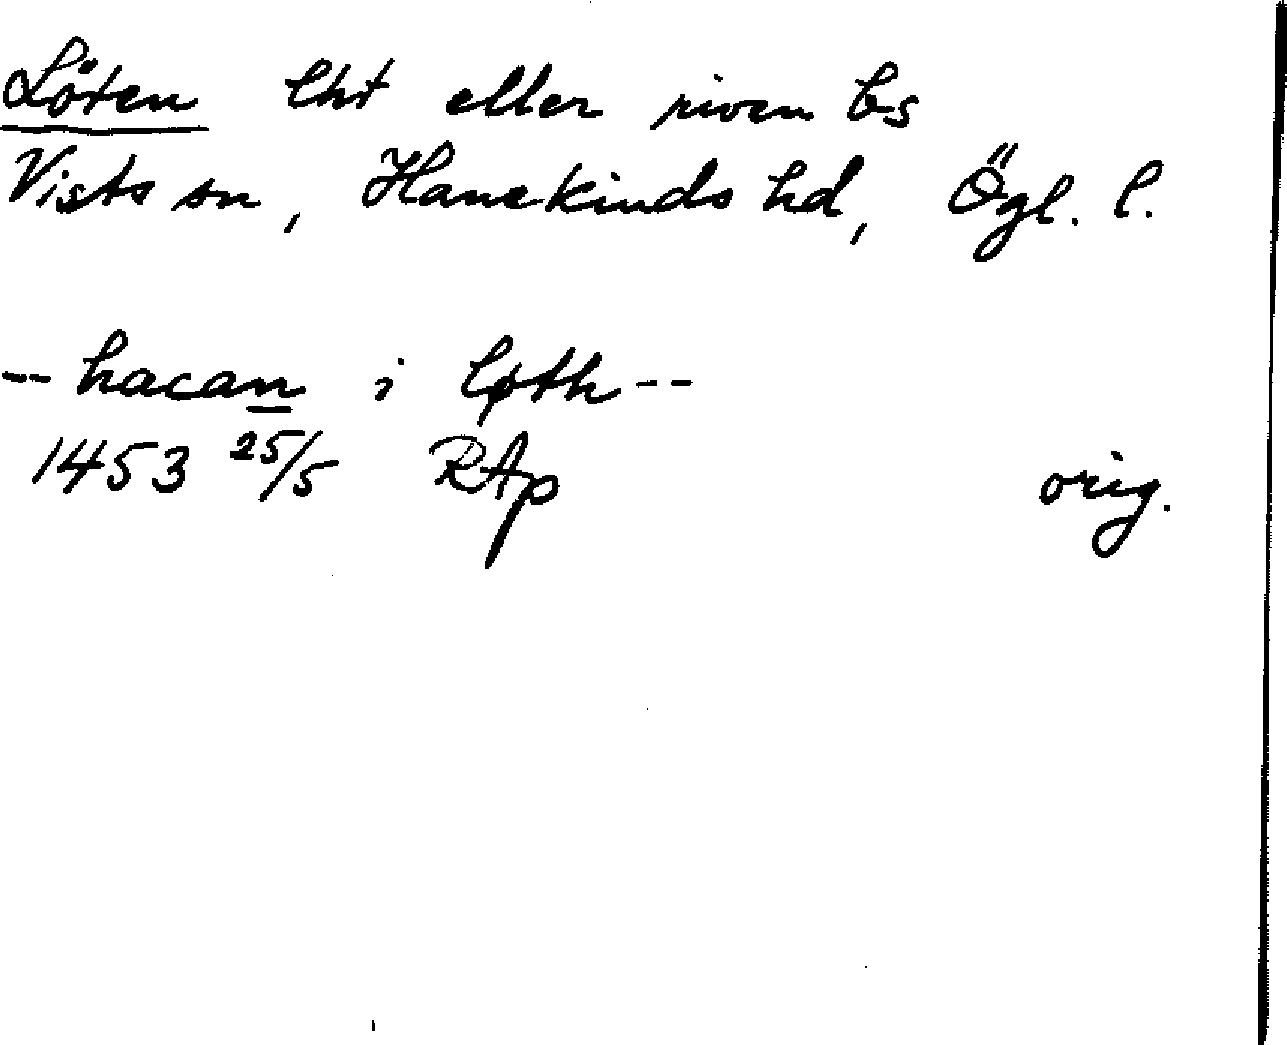 Löten lht eller riven bs
Vists sn, Hanekinds hd, Ögl. l.
-- hacan i løth --
1453 25/5 RAp orig.